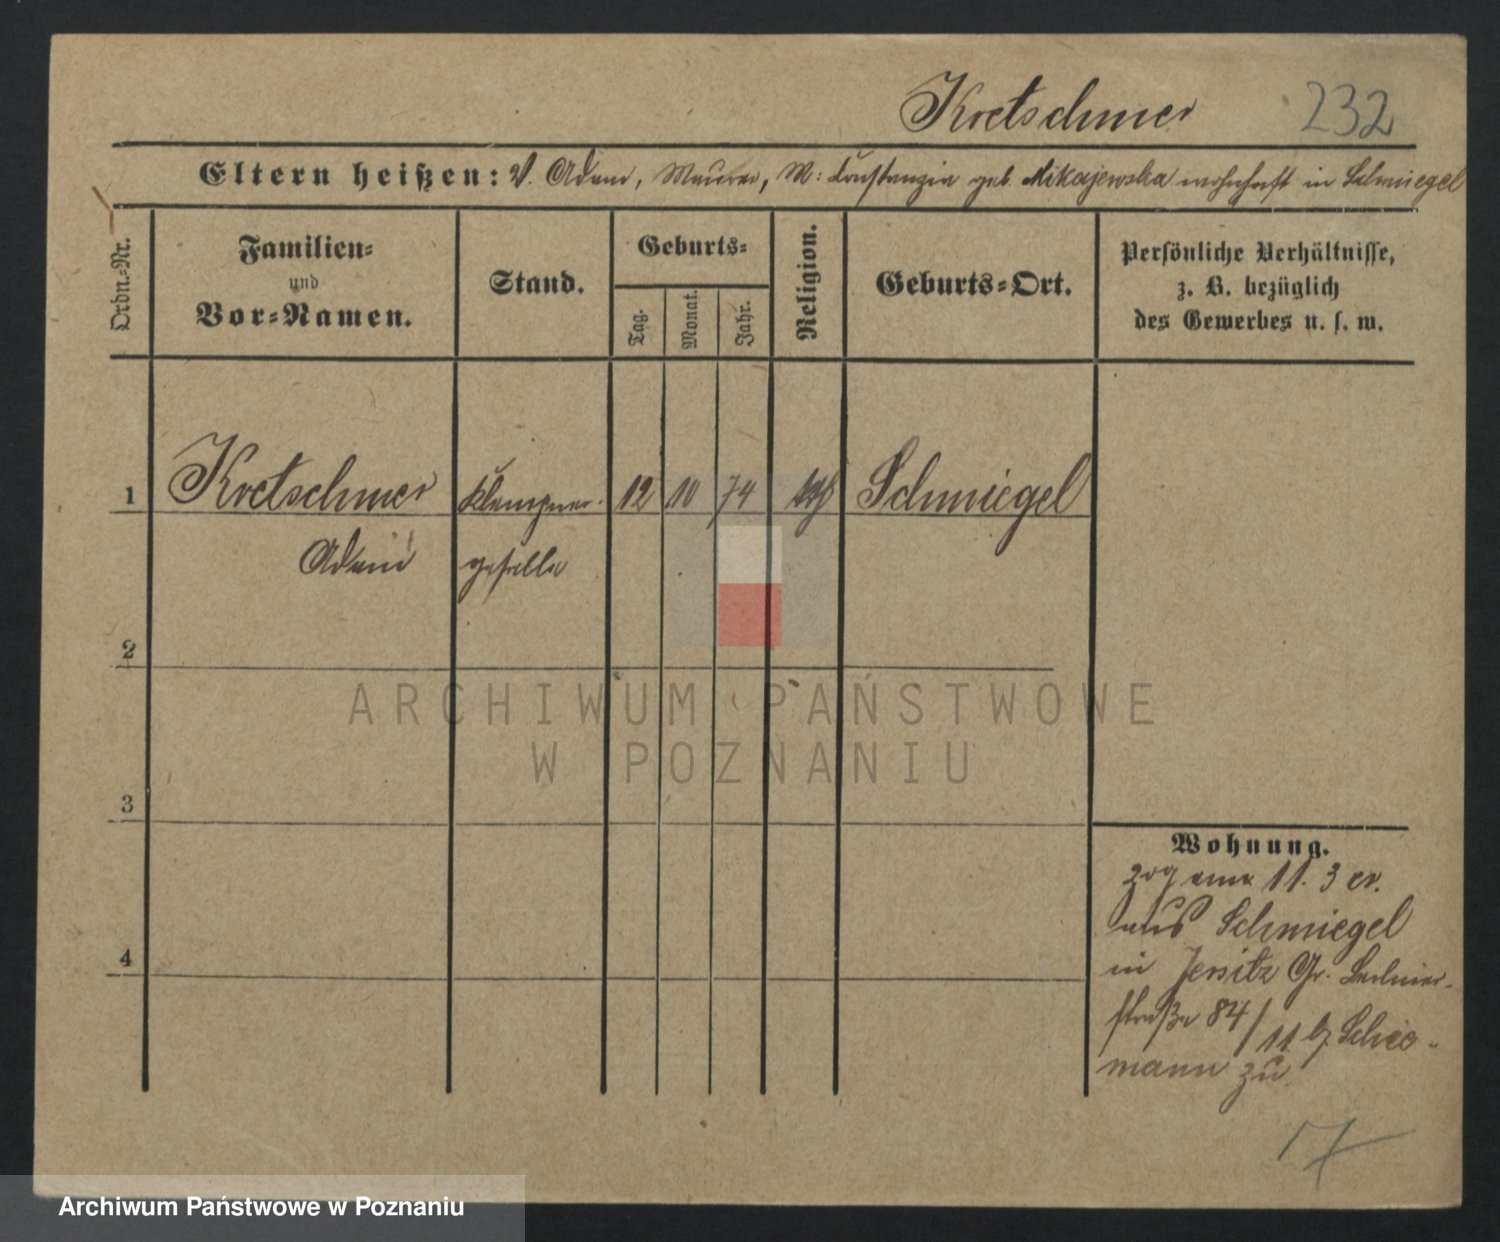 Kretschmer 232
Eltern heißen: V. Adam, Maurer, M: Constanzia geb. Mikajewska wohnhaft in Schmiegel
Ordn.-Nr.
Familien-
und
Vor-Namen.
Stand.
Geburts-
Tag.
Monat.
Jahr.
Religion.
Geburts-Ort.
Persönliche Verhältnisse,
z. B. bezüglich
des Gewerbes u. s. w.
1 Kretschmer Klempner- 12 10 74 kth Schmiegel
Adam geselle
2
3
4
Wohnung.
zog am 11. 3 cr.
aus Schmiegel
in Jersitz Gr. Berliner-
straße 84/11 b/
mann zu
17
ARCHIWUM PAŃSTWOWE
W POZNANIU
Archiwum Państwowe w Poznaniu